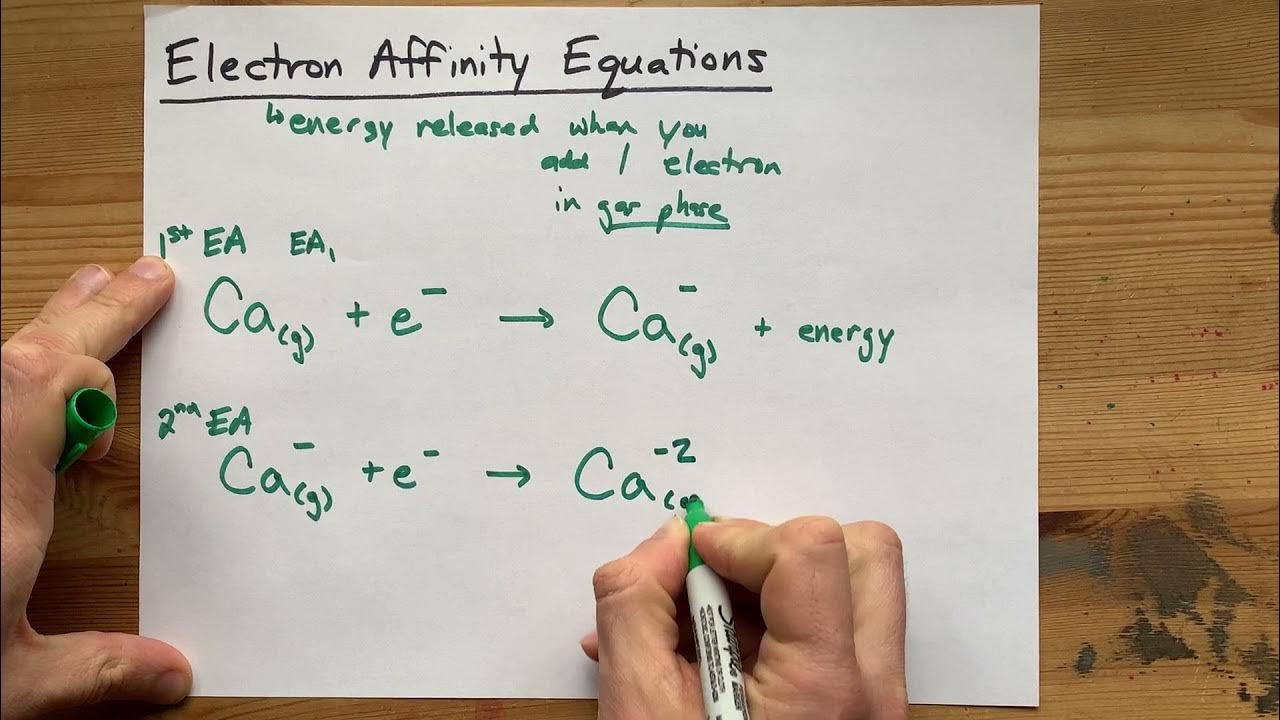 Electron Affinity Equations
↳energy released when you
add 1 electron
in gas phase
1st EA EA₁
Ca(g) + e⁻ → Ca⁻(g) + energy
2nd EA
Ca⁻(g) + e⁻ → Ca⁻²
Sharpie